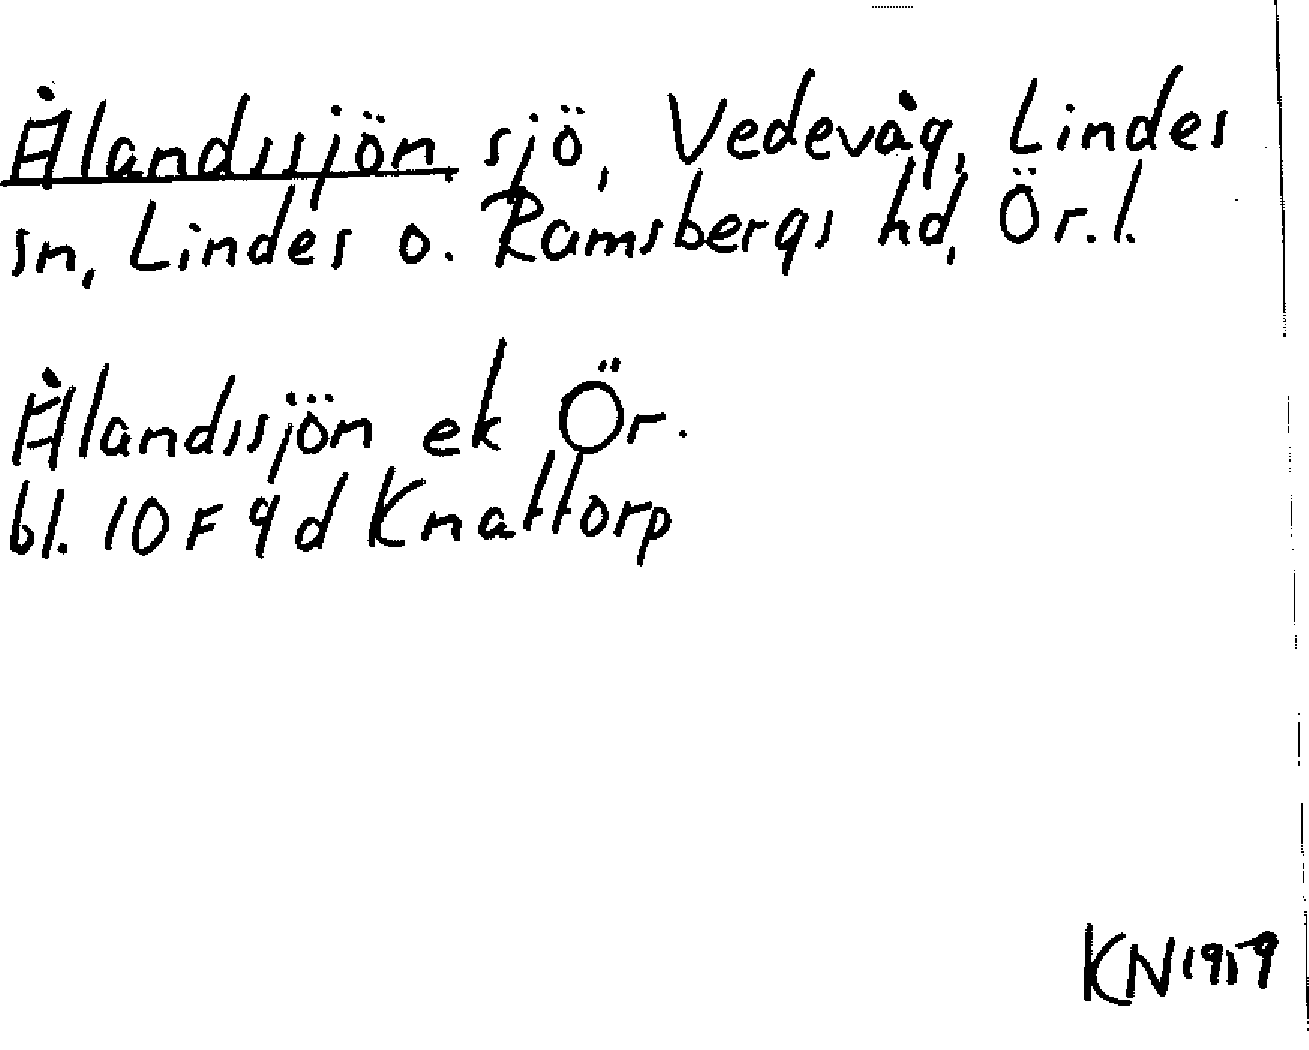 Ålandssjön, sjö, Vedevåg, Lindes
sn, Lindes o. Ramsbergs hd, Ör. l.
Ålandssjön ek Ör.
bl. 10 F 9 d Knattorp
KN 1959